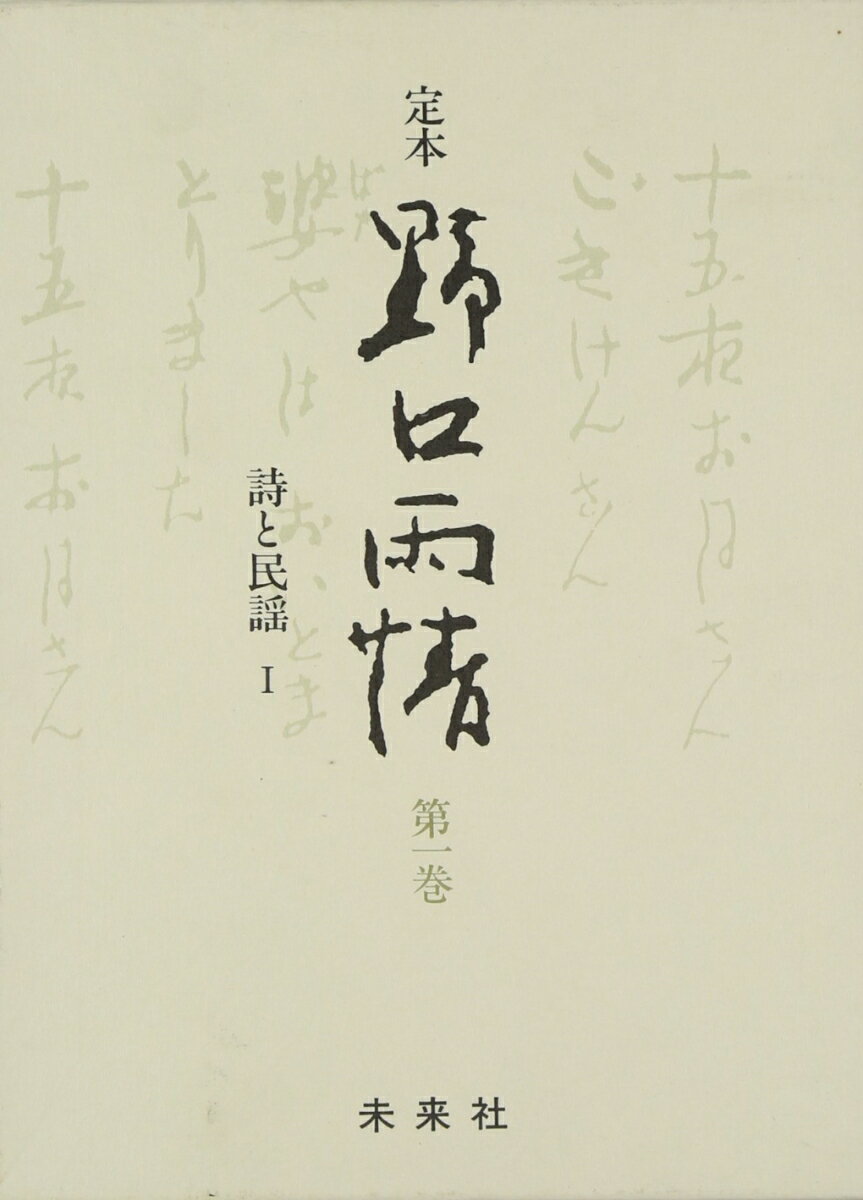 定本
野口雨情
詩と民謡 I
第一巻
十五夜お月さん
ごきげんさん
ばあ
婆やは おいとま
とりました
十五夜お月さん
未来社